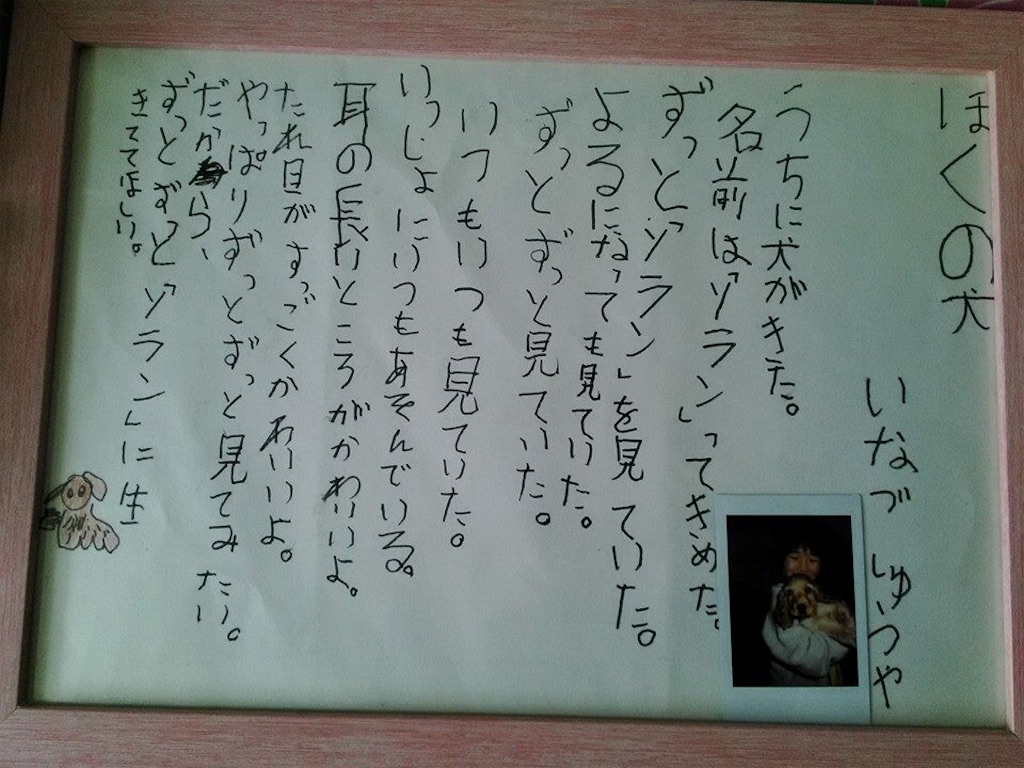 ほくの犬
いなづ しゅうや
うちに犬がきた。
名前は「ゾラン」ってきめた。
ずっと「ゾラン」を見ていた。
よるになっても見ていた。
ずっとずっと見ていた。
いつもいつも見ていた。
いっしょにいつもあそんでいる。
耳の長いところがかわいいよ。
たれ目がすっごくかわいいよ。
やっぱりずっとずっと見てみたい。
だから、
ずっとずっと「ゾラン」に生
きててほしい。